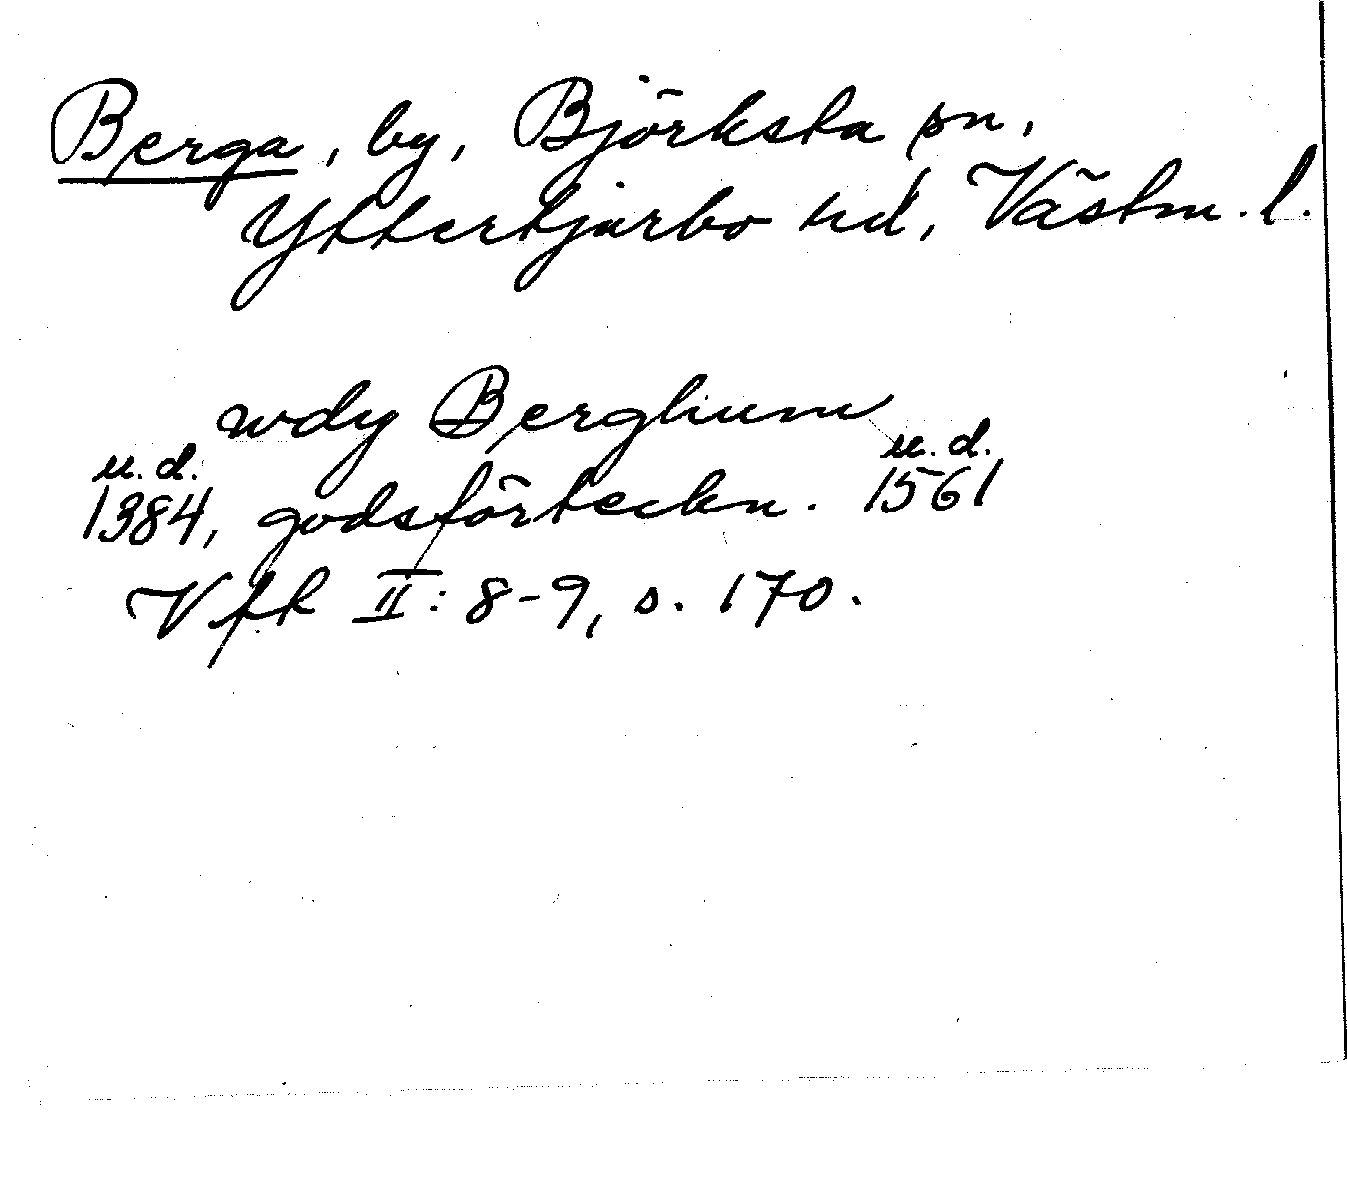 Berga, by, Björksta sn,
Yttertjurbo hd, Västm. l.
wdy Berghum
u. d. 1384, godsförteckn. u. d. 1561
Vfk II: 8-9, s. 170.